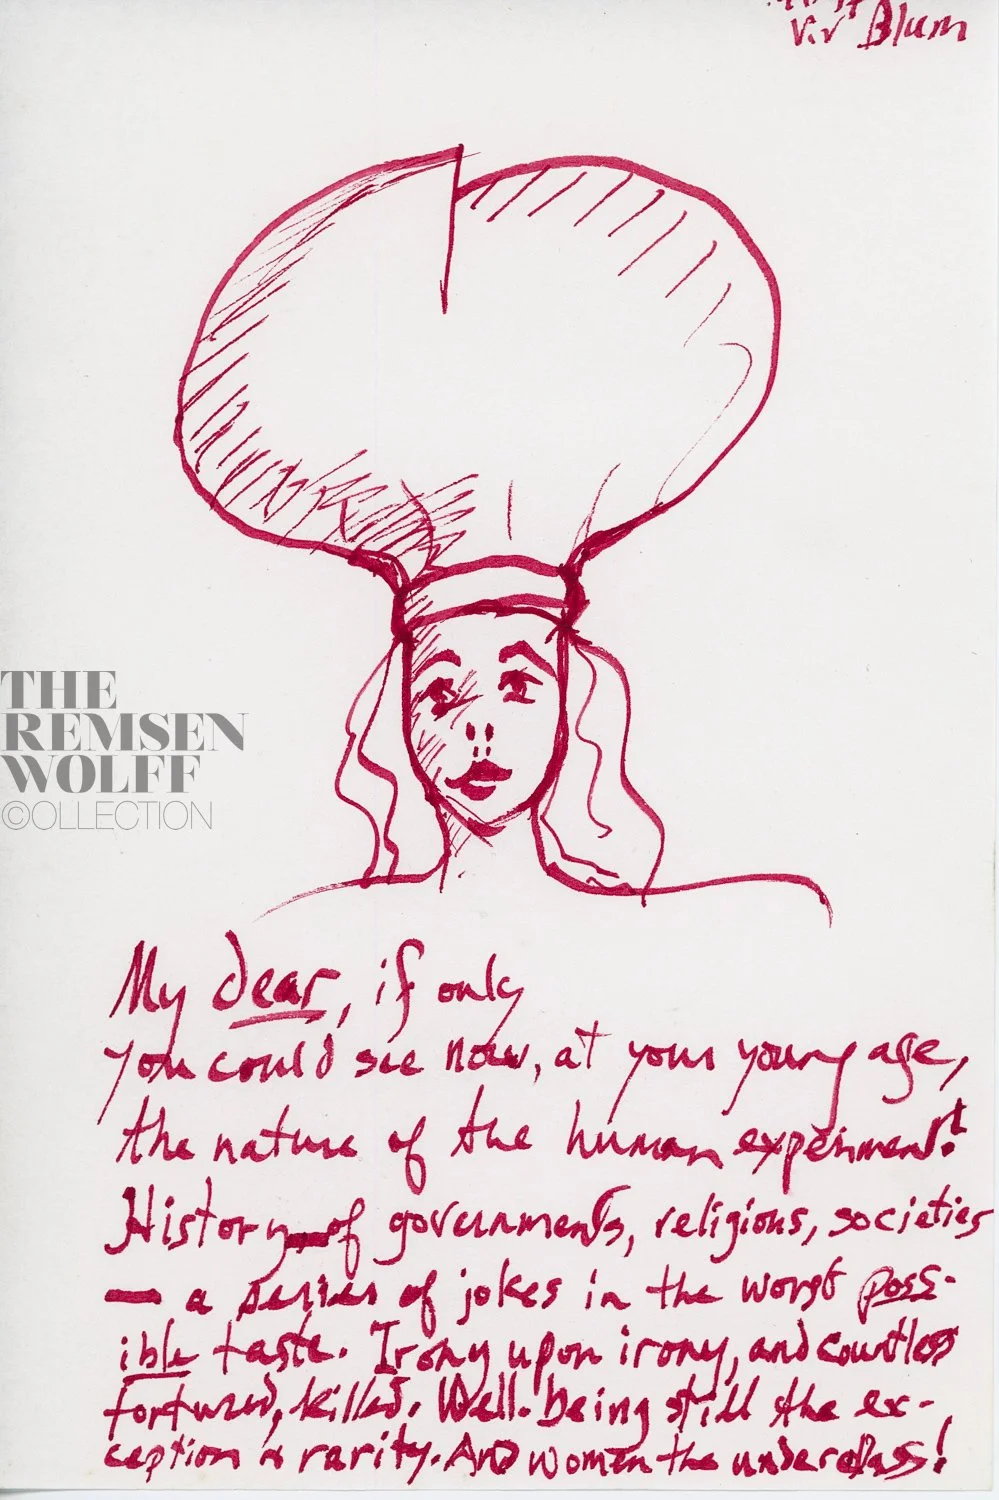 Viv Blum
THE
REMSEN
WOLFF
©OLLECTION
My dear, if only
you could see now, at your young age,
the nature of the human experiment!
History of governments, religions, societies
— a series of jokes in the worst poss-
ible taste. Irony upon irony, and countless
tortured, killed. Well-being still the ex-
ception & rarity. And women the underclass!